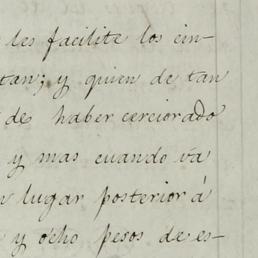 les facilite los cin-
tan; y quien de tan
de haber cerciorado
y mas cuando va
lugar posterior á
y ocho pesos de es-